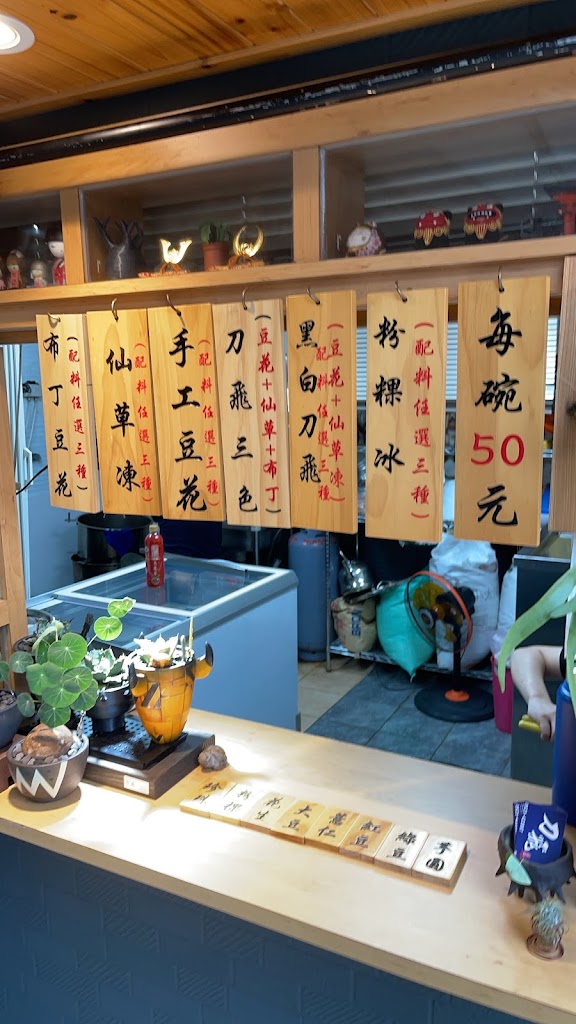 每碗50元
粉粿冰
(配料任選三種)
黑白刀飛
(豆花+仙草凍
配料任選三種)
刀飛三色
(豆花+仙草+布丁)
手工豆花
(配料任選三種)
仙草凍
(配料任選三種)
布丁豆花
(配料任選三種)
粉粿
花生
大豆
薏仁
紅豆
綠豆
芋圓
刀飛